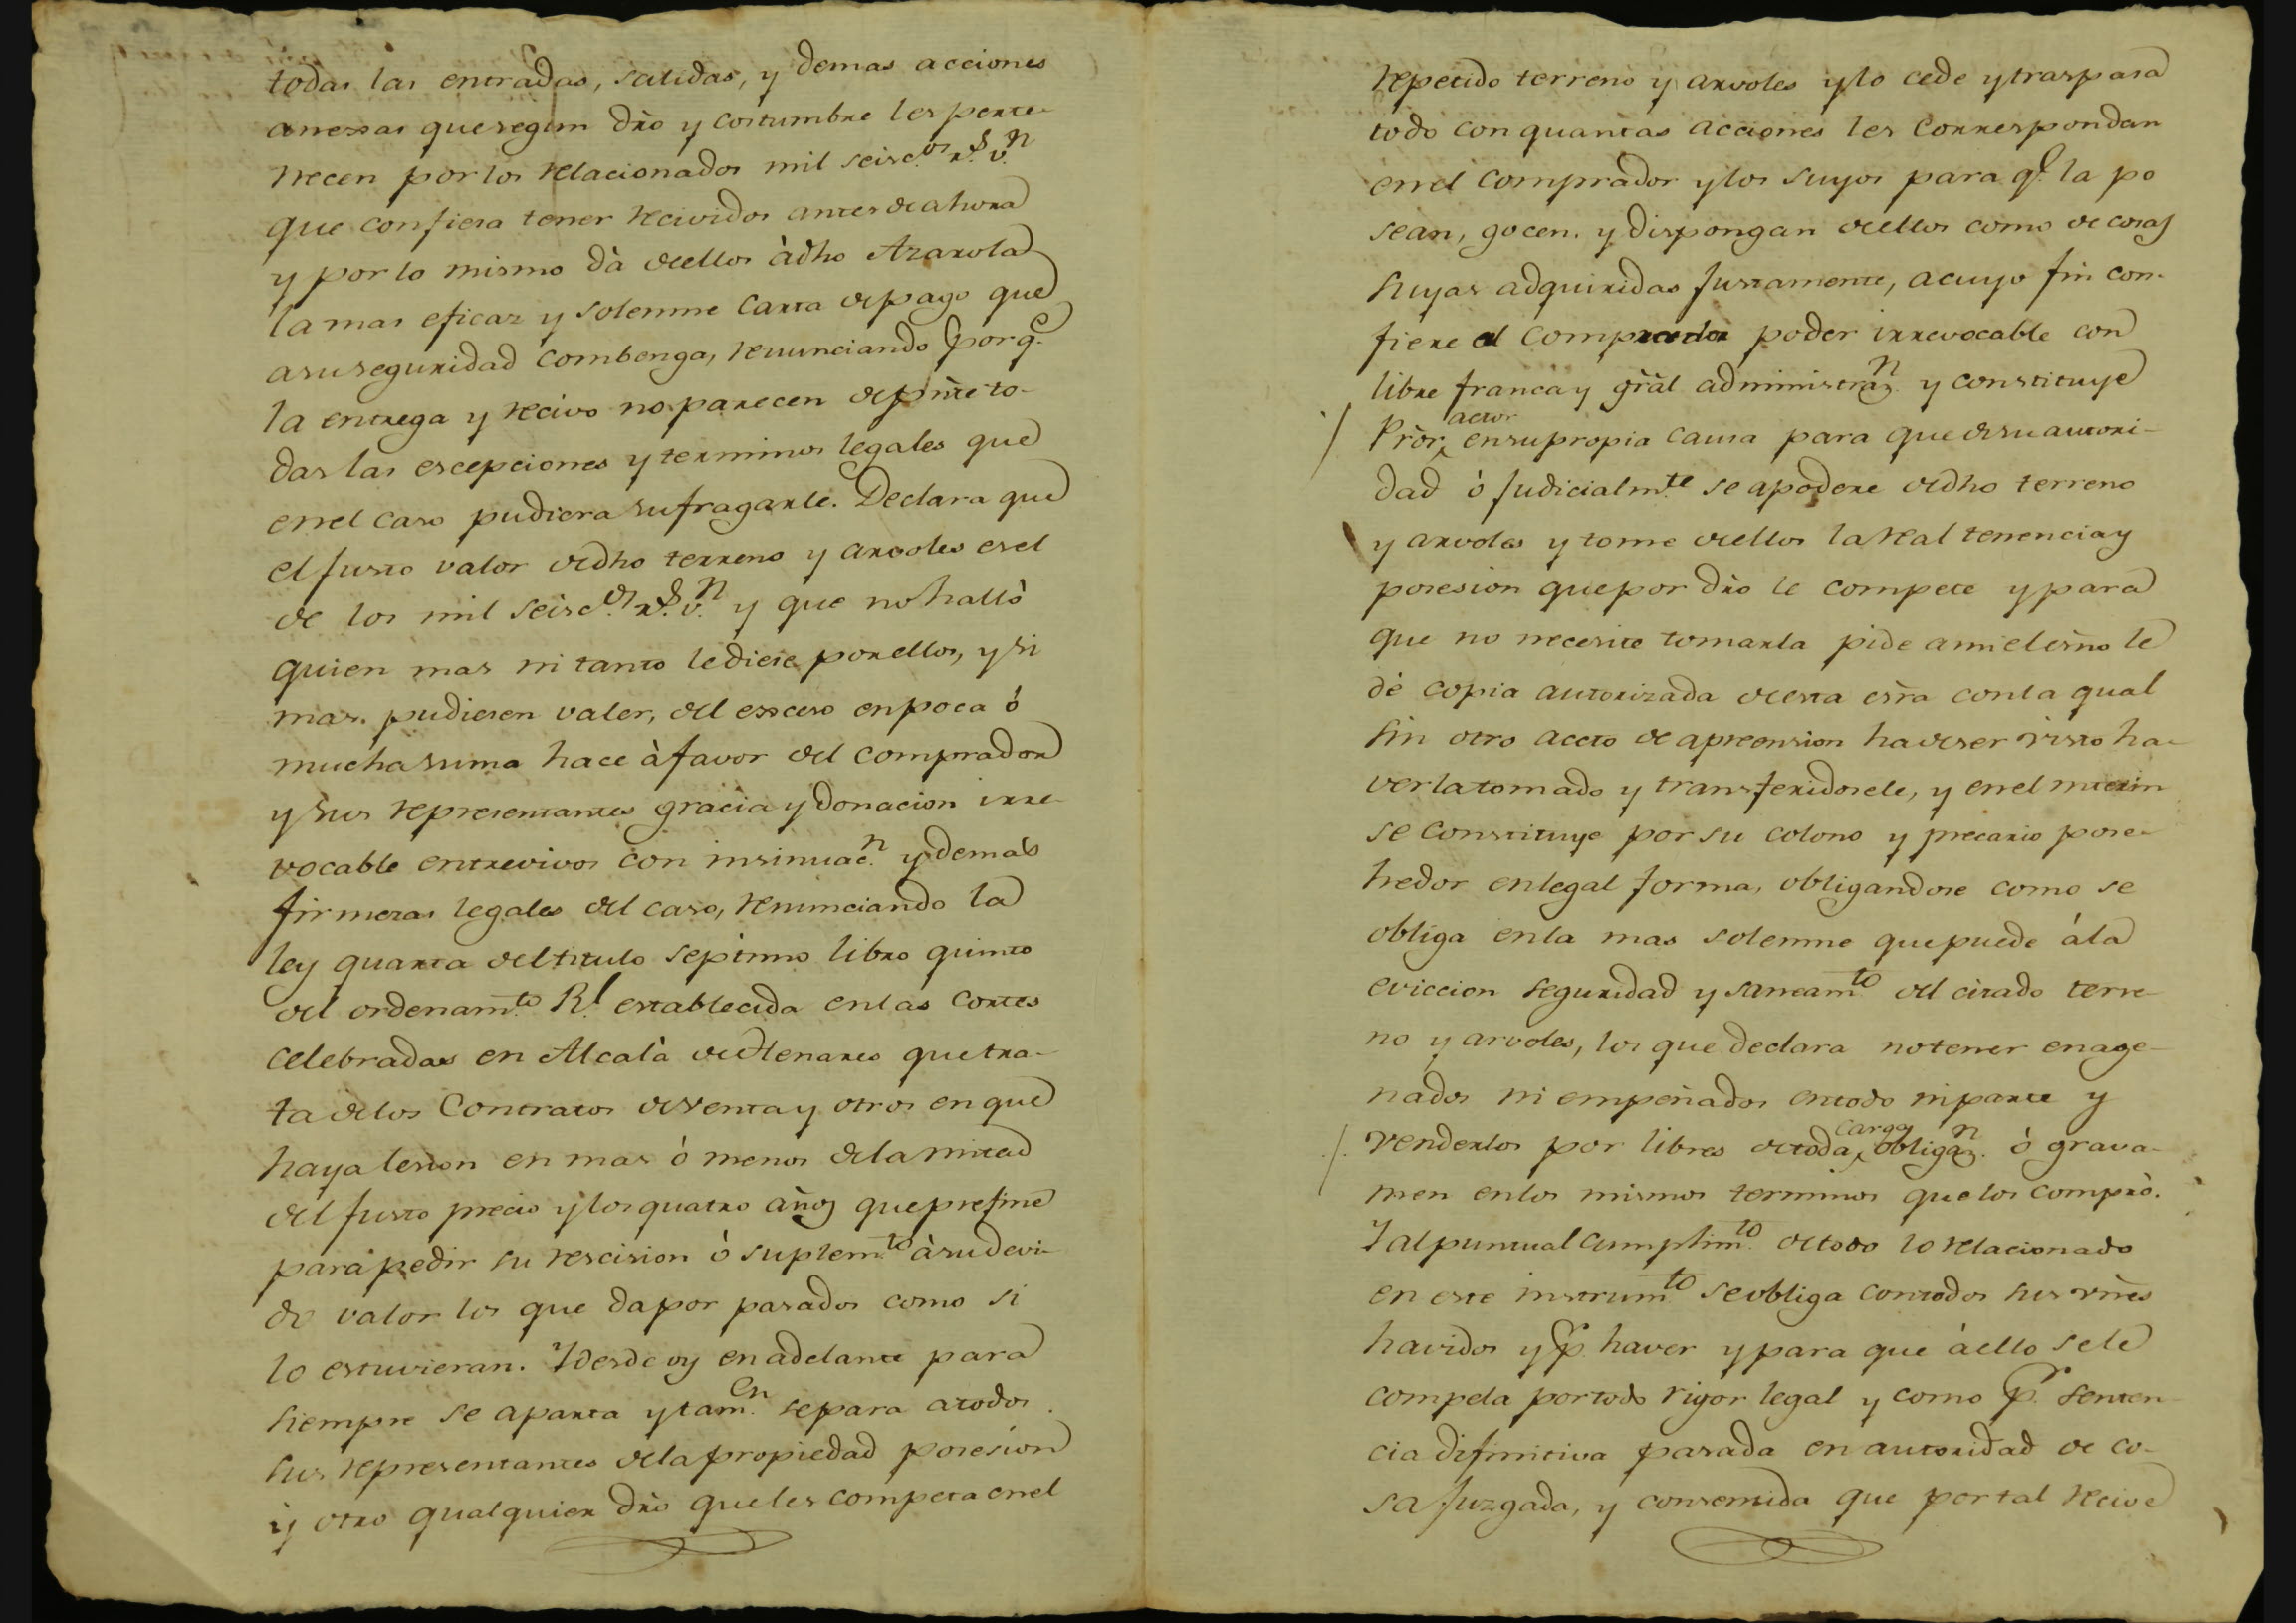 todas las entradas, salidas, y demas acciones
anexsas que segun dro y costumbre les perte-
necen por los relacionados mil seisc.os r.s v.n
que confiesa tener recividos antes de ahora
y por lo mismo dà de ellos à dho Azarola
la mas eficaz y solemne carta de pago que
a su seguridad combenga, renunciando porq.e
la entrega y recivo no parecen de pnte to-
das las escepciones y terminos legales que
en el caso pudiera sufragarle. Declara que
el justo valor de dho terreno y arvoles es el
de los mil seisc.os r.s v.n y que no hallò
quien mas ni tanto le diese por ellos, y si
mas pudiesen valer, del exsceso en poca ó
mucha suma hace à favor del comprador
y sus representantes gracia y donacion irre-
vocable entrevivos con insinuac.n y demás
firmezas legales del caso, renunciando la
ley quarta del titulo septimo libro quinto
del ordenam.to R.l establecida en las cortes
celebradas en Alcalà de Henares que tra-
ta de los Contratos de venta y otros en que
haya lesion en mas ó menos de la mitad
del justo precio y los quatro años que prefine
para pedir su rescision ò suplem.to à su devi-
do valor los que da por pasados como si
lo estuvieran. Y desde oy en adelante para
siempre se aparta y tam.en separa a todos
sus representantes de la propiedad posesion
y otro qualquier dro que les competa en el
repetido terreno y arvoles y lo cede y traspasa
todo con quantas acciones les correspondan
en el comprador y los suyos para q.e la po
sean, gocen. y dispongan de ellos como de cosas
suyas adquiridas justamente, a cuyo fin con-
fiere al comprador poder irrevocable con
libre franca y gral administraz.n y constituye
Pror actor en su propia causa para que de su autori-
dad ò judicialm.te se apodere de dho terreno
y arvoles y tome de ellos la real tenencia y
posesion que por dro le compete y para
que no necesite tomarla pide a mi el esno le
dé copia autorizada de esta esra con la qual
sin otro accto de apreension ha de ser visto ha-
verla tomado y transferidosele, y en el interin
se constituye por su colono y precario pose-
hedor en legal forma, obligandose como se
obliga en la mas solemne que puede á la
eviccion seguridad y saneam.to del citado terre-
no y arvoles, los que declara no tener enage-
nados ni empeñados en todo ni parte y
venderlos por libres de toda carga obligaz.n ò grava-
men en los mismos terminos que los comprò.
Y al puntual cumplim.to de todo lo relacionado
en este instrum.to se obliga con todos sus vnes
havidos y p.r haver y para que à ello se le
compela por todo rigor legal y como p.r senten
cia difinitiva pasada en autoridad de co-
sa juzgada, y consentida que por tal recive